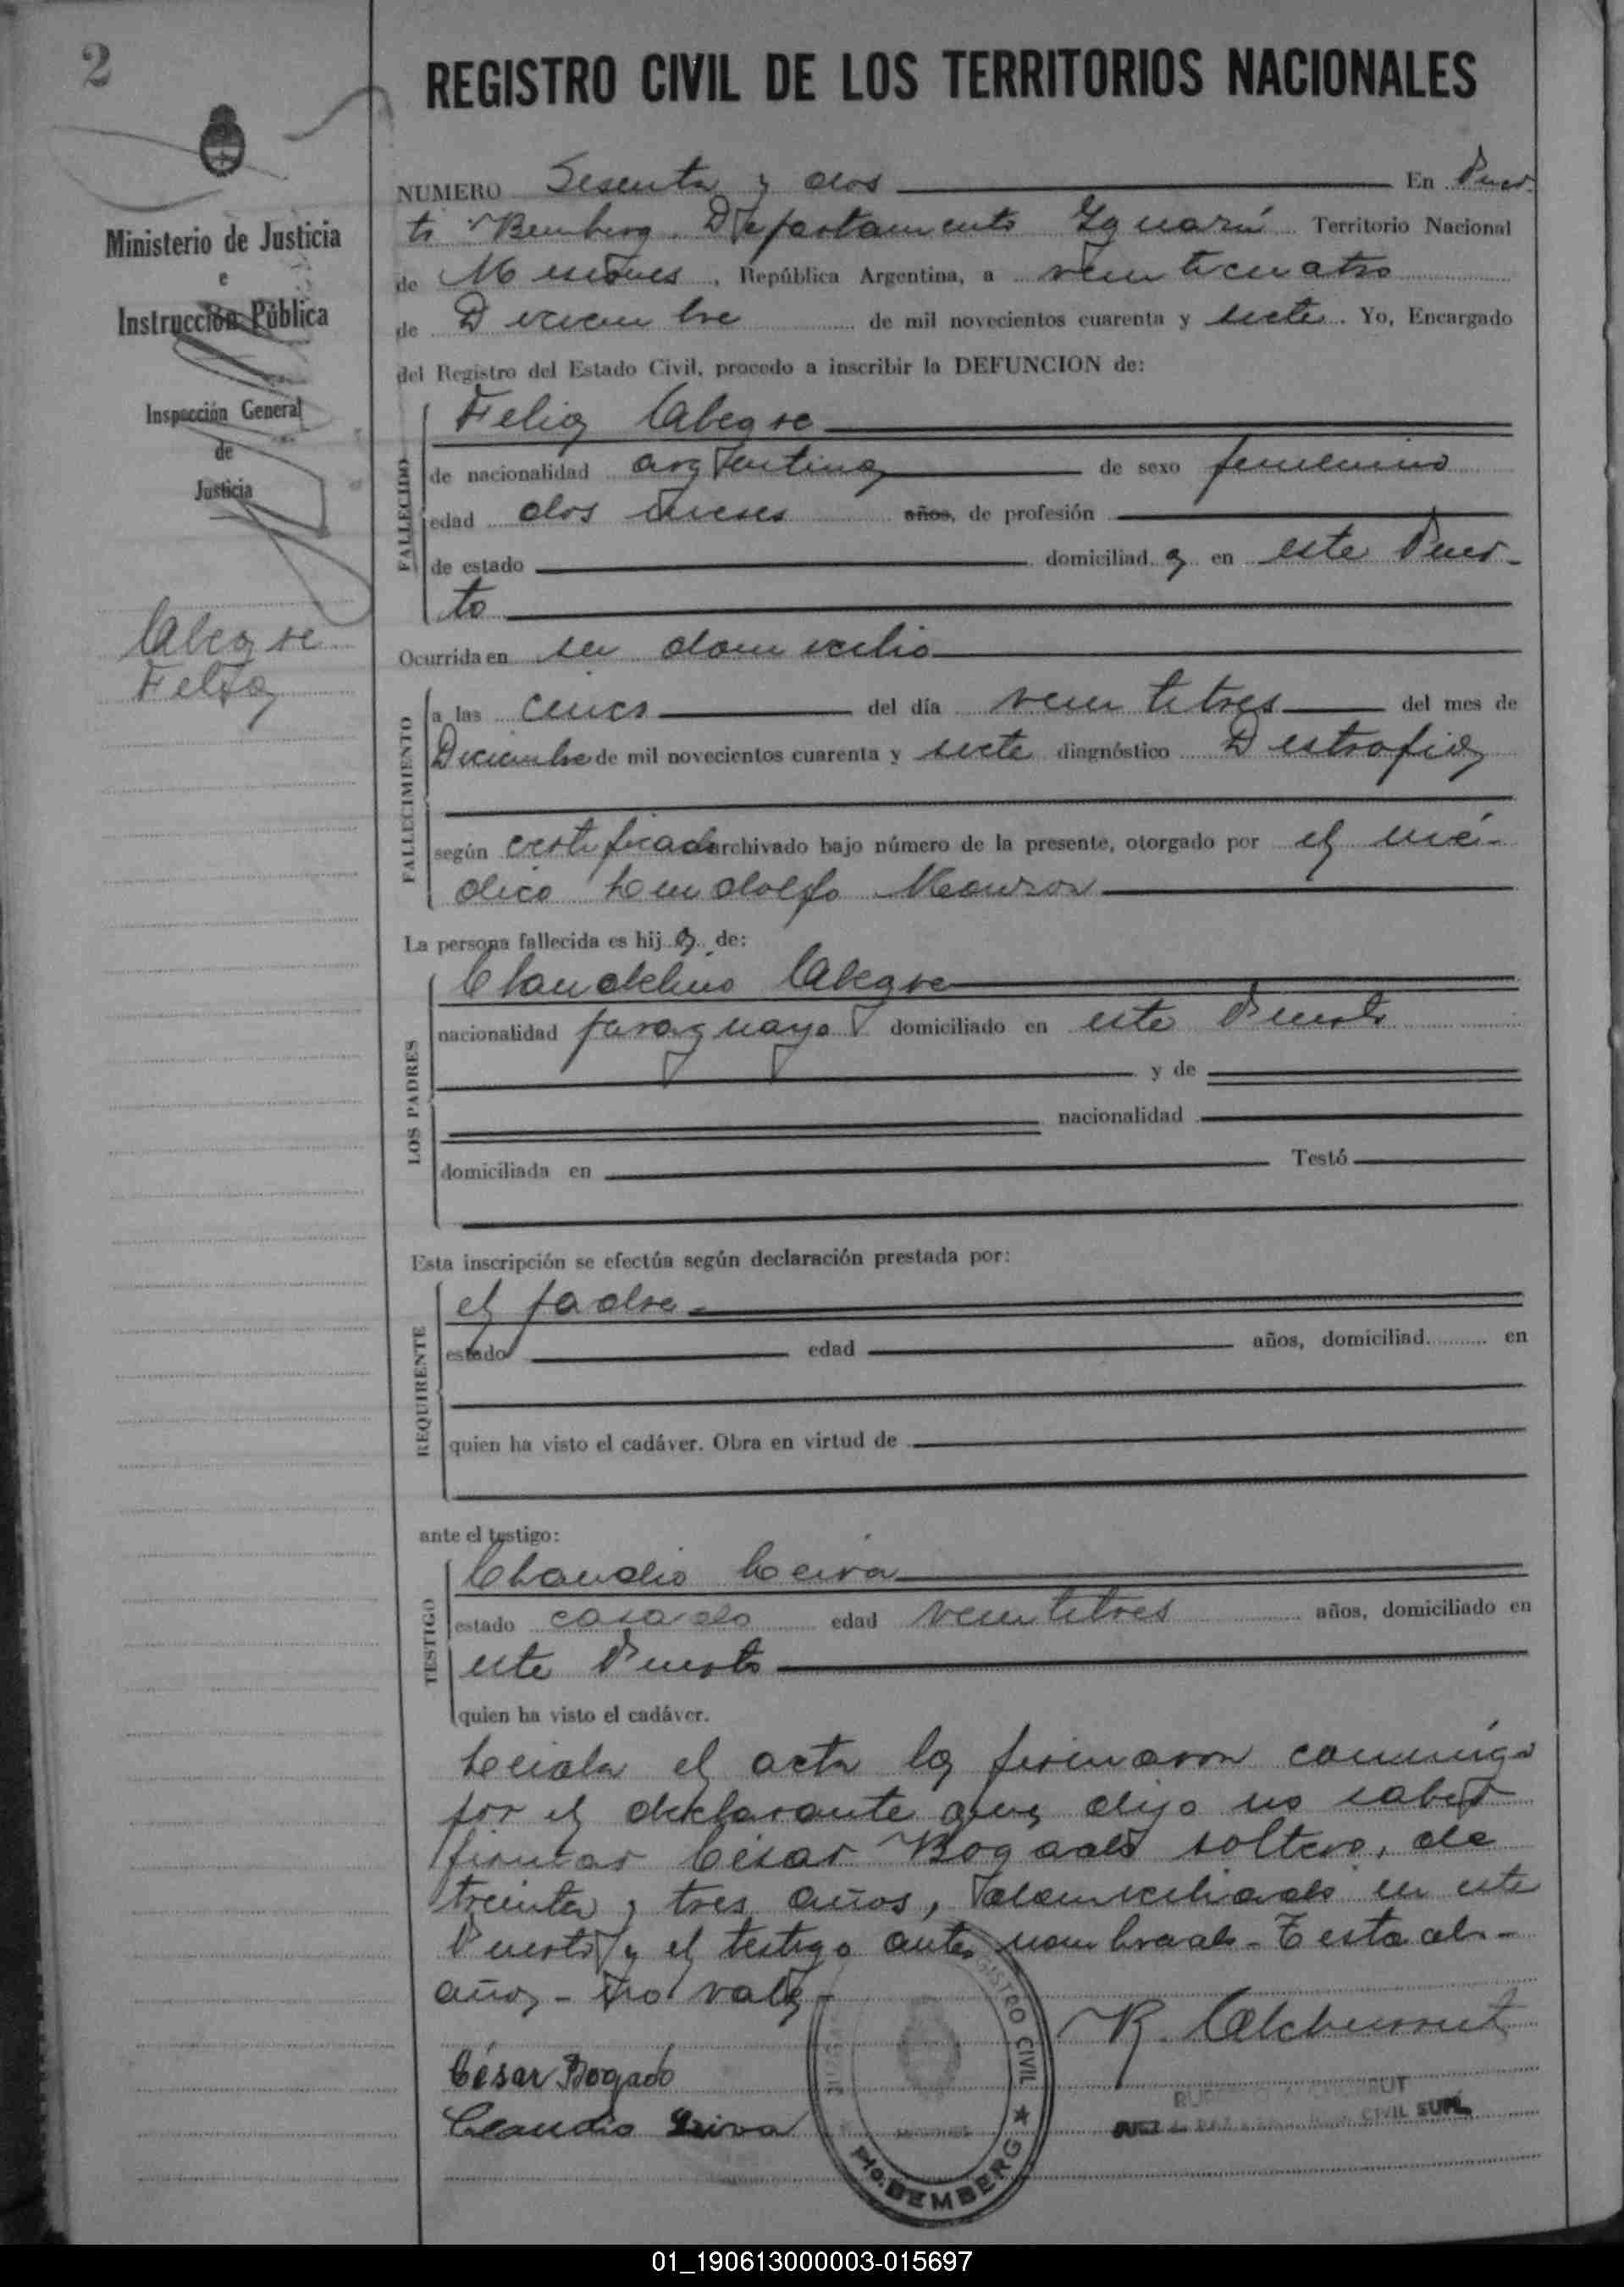 2
REGISTRO CIVIL DE LOS TERRITORIOS NACIONALES
Ministerio de Justicia
e
Instrucción Pública
Inspección General
de
Justicia
Alegre
Felisa
NUMERO Sesenta y dos En Puer-
to Bemberg. Departamento Iguazú Territorio Nacional
de Misiones, República Argentina, a veinticuatro
de Diciembre de mil novecientos cuarenta y siete. Yo, Encargado
del Registro del Estado Civil, procedo a inscribir la DEFUNCION de:
FALLECIDO
Felia Alegre
de nacionalidad argentina de sexo femenino
edad dos meses años, de profesión
de estado domiciliad a en este Puer-
to
Ocurrida en su domicilio
FALLECIMIENTO
a las cinco del día veintitres del mes de
Diciembre de mil novecientos cuarenta y siete diagnóstico Distrofia
según certificado archivado bajo número de la presente, otorgado por el mé-
dico Lindolfo
La persona fallecida es hij a de:
LOS PADRES
Claudelino Alegre
nacionalidad paraguayo domiciliado en este Puerto
y de
nacionalidad
domiciliada en Testó
Esta inscripción se efectúa según declaración prestada por:
REQUIRENTE
el padre
estado edad años, domiciliad en
quien ha visto el cadáver. Obra en virtud de
ante el testigo:
TESTIGO
Claudio Leiva
estado casado edad veintitres años, domiciliado en
este Puerto
quien ha visto el cadáver.
Leida el acta la firmaron conmigo
por el declarante que dijo no saber
firmar César Bogado soltero, de
treinta y tres años, domiciliado en este
Puerto y el testigo antes nombrado - Testado -
años - no vale -
César Bogado
Claudio Leiva
R. Alchurrut
REGISTRO CIVIL
Pto. BEMBERG
CIVIL SUPL.
01_190613000003-015697